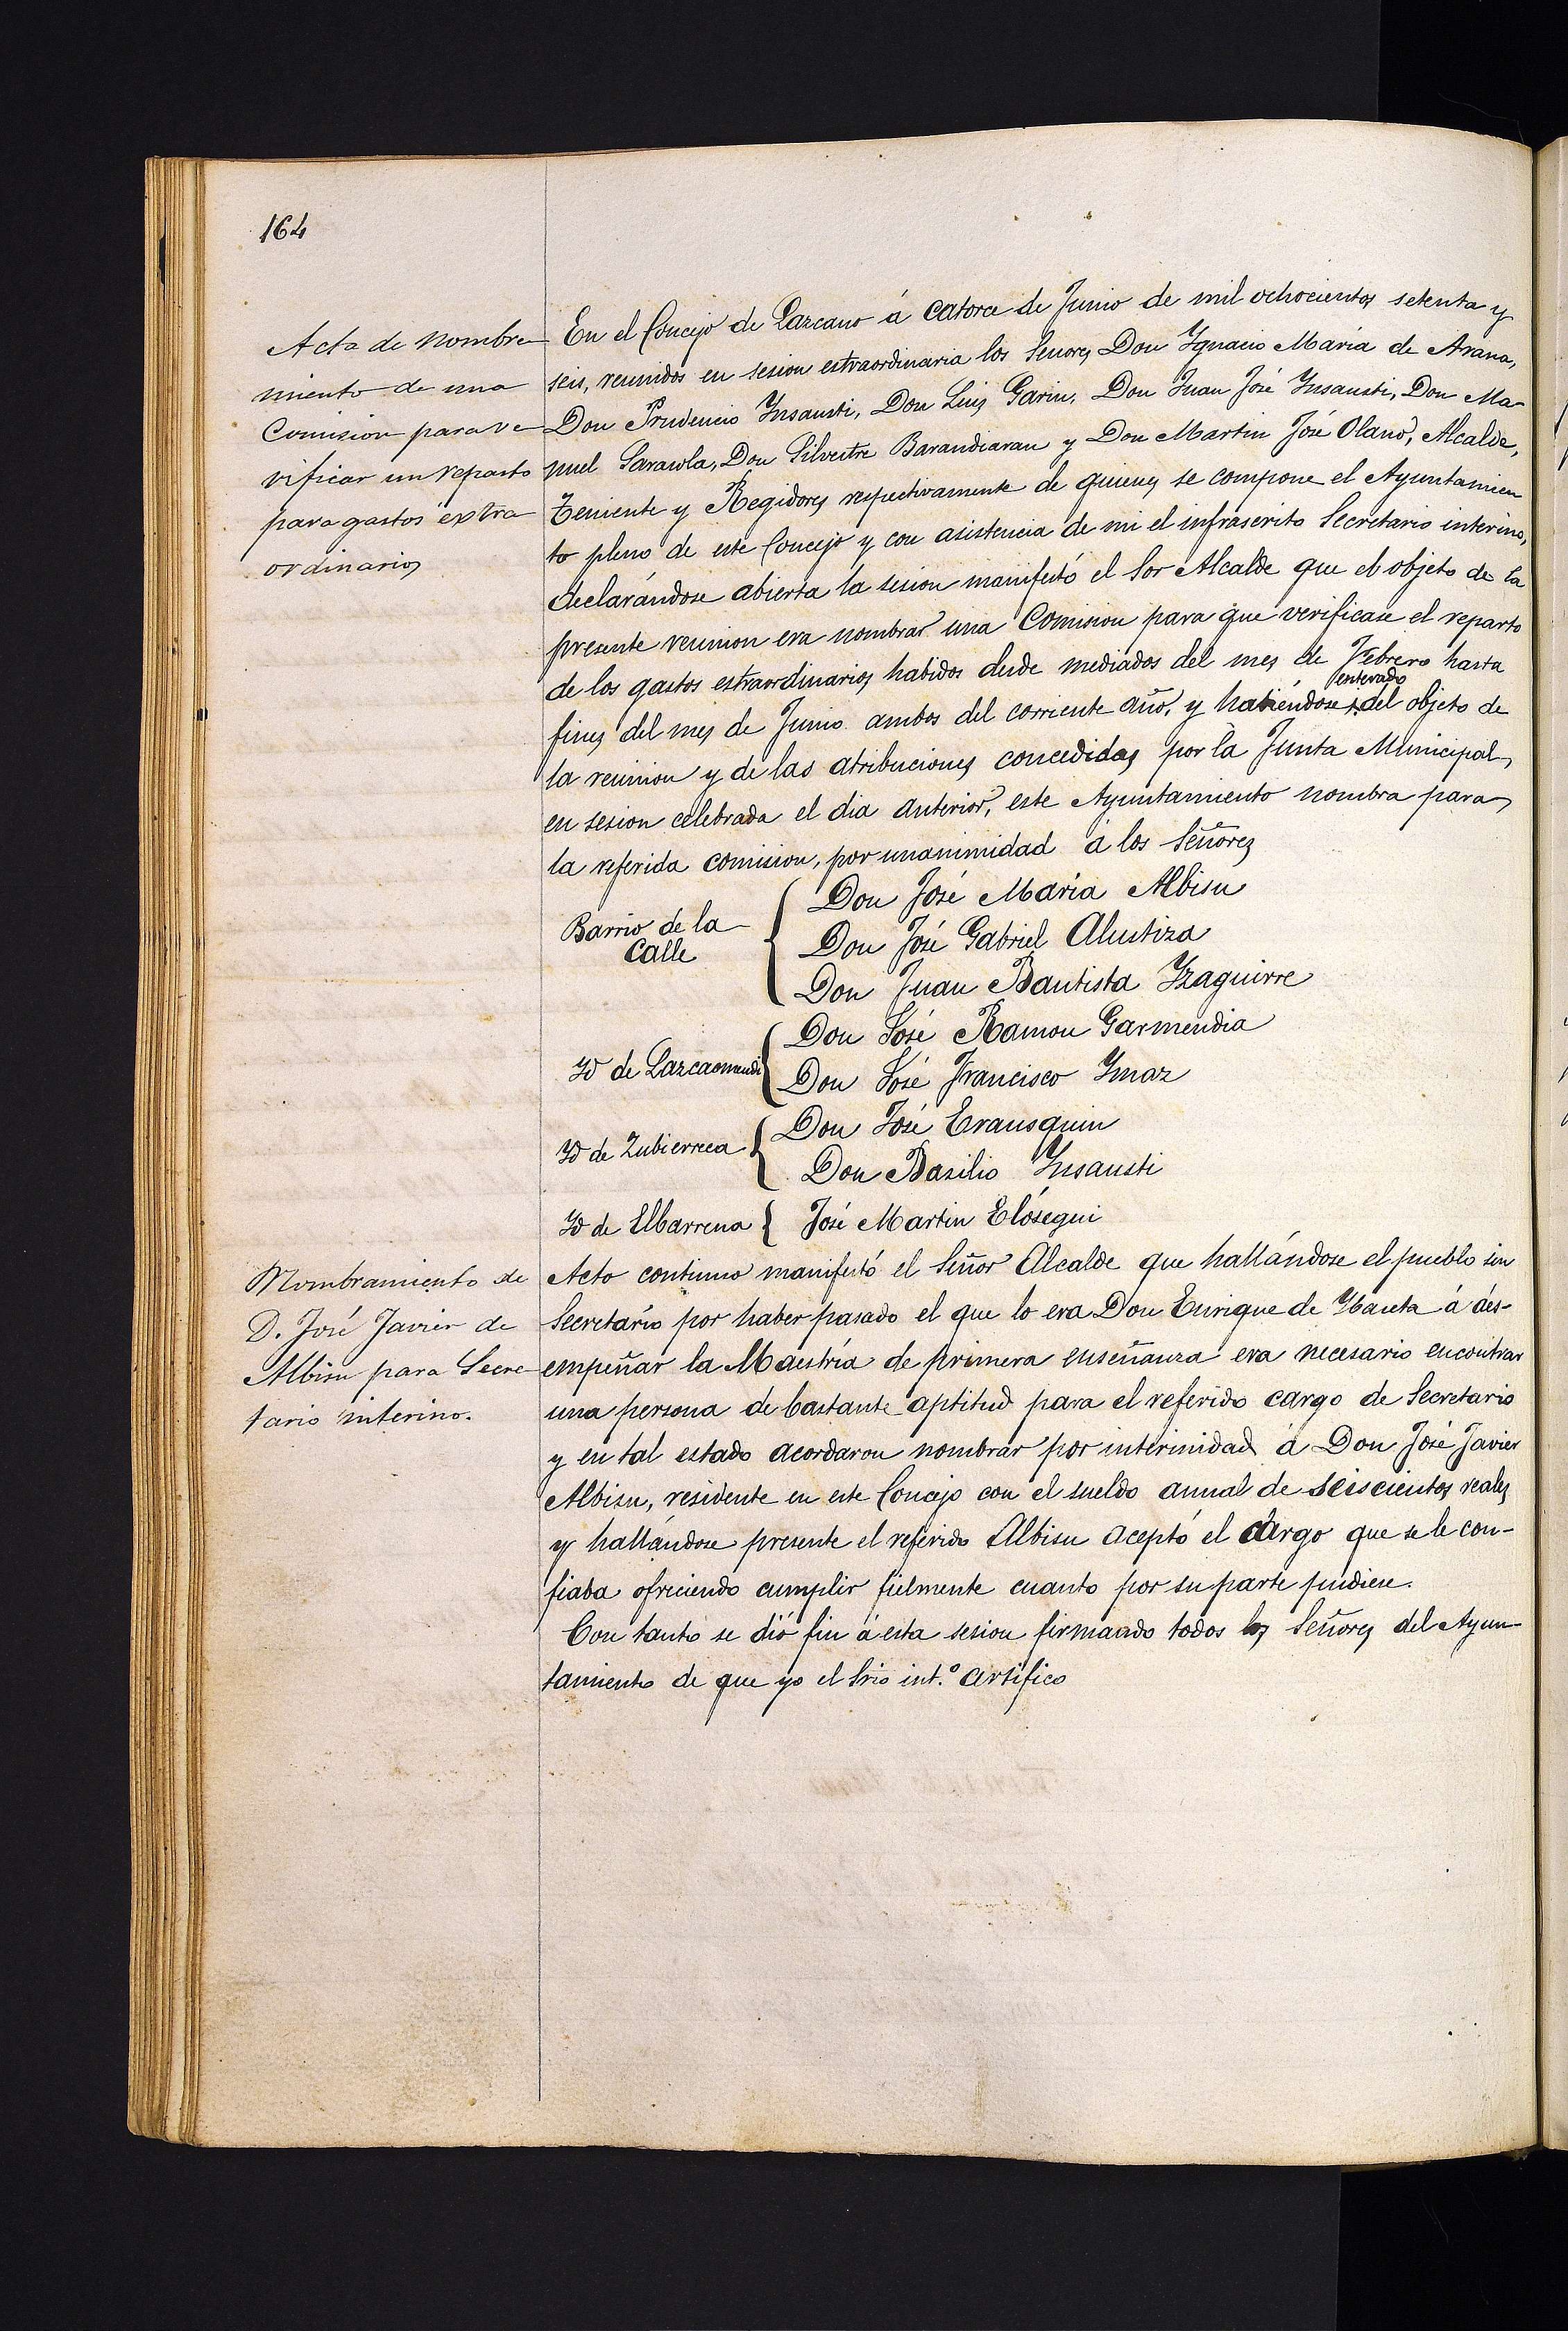 164
Acta de nombra
miento de una
Comision para ve
rificar un reparto
para gastos extra
ordinarios
En el Concejo de Lazcano á catorce de Junio de mil ochocientos setenta y
seis, reunidos en sesion estraordinaria los Señores Don Ygnacio María de Arana,
Don Prudencio Ynsausti, Don Luis Garin, Don Juan José Ynsausti, Don Ma-
nuel Sarasola, Don Silvestre Barandiaran y Don Martin José Olano, Alcalde,
Teniente y Regidores respectivamente de quienes se compone el Ayuntamien
to pleno de este Concejo y con asistencia de mi el infrascrito Secretario interino,
declarándose abierta la sesion manifestó el Sor Alcalde que el objeto de la
presente reunion era nombrar una Comision para que verificase el reparto
de los gastos estraordinarios habidos desde mediados del mes de Febrero hasta
enterado
fines del mes de Junio ambos del corriente año, y habiéndose del objeto de
la reunion y de las atribuciones concedidas por la Junta Municipal,
en sesion celebrada el dia anterior, este Ayuntamiento nombra para
la referida comision, por unanimidad á los Señores
Barrio de la
Calle
Don José María Albisu
Don José Gabriel Alustiza
Don Juan Bautista Yzaguirre
Yd de Lazcaomendi
Don José Ramon Garmendia
Don José Francisco Ymaz
Yd de Zubierreca
Don José Erausquin
Don Basilio Ynsausti
Yd de Elbarrena { José Martin Elósegui
Nombramiento de
D. José Javier de
Albisu para Secre
tario interino.
Acto continuo manifestó el Señor Alcalde que hallándose el pueblo sin
Secretario por haber pasado el que lo era Don Enrique de á des-
empeñar la Maestría de primera enseñanza era necesario encontrar
una persona de bastante aptitud para el referido cargo de Secretario
y en tal estado acordaron nombrar por interinidad á Don José Javier
Albisu, residente en este Concejo con el sueldo annal de seiscientos reales
y hallándose presente el referido Albisu aceptó el cargo que se le con-
fiaba ofreciendo cumplir fielmente cuanto por su parte pudiese.
Con tanto se dió fin á esta sesion firmando todos los Señores del Ayun-
tamiento de que yo el Srio int.º certifico